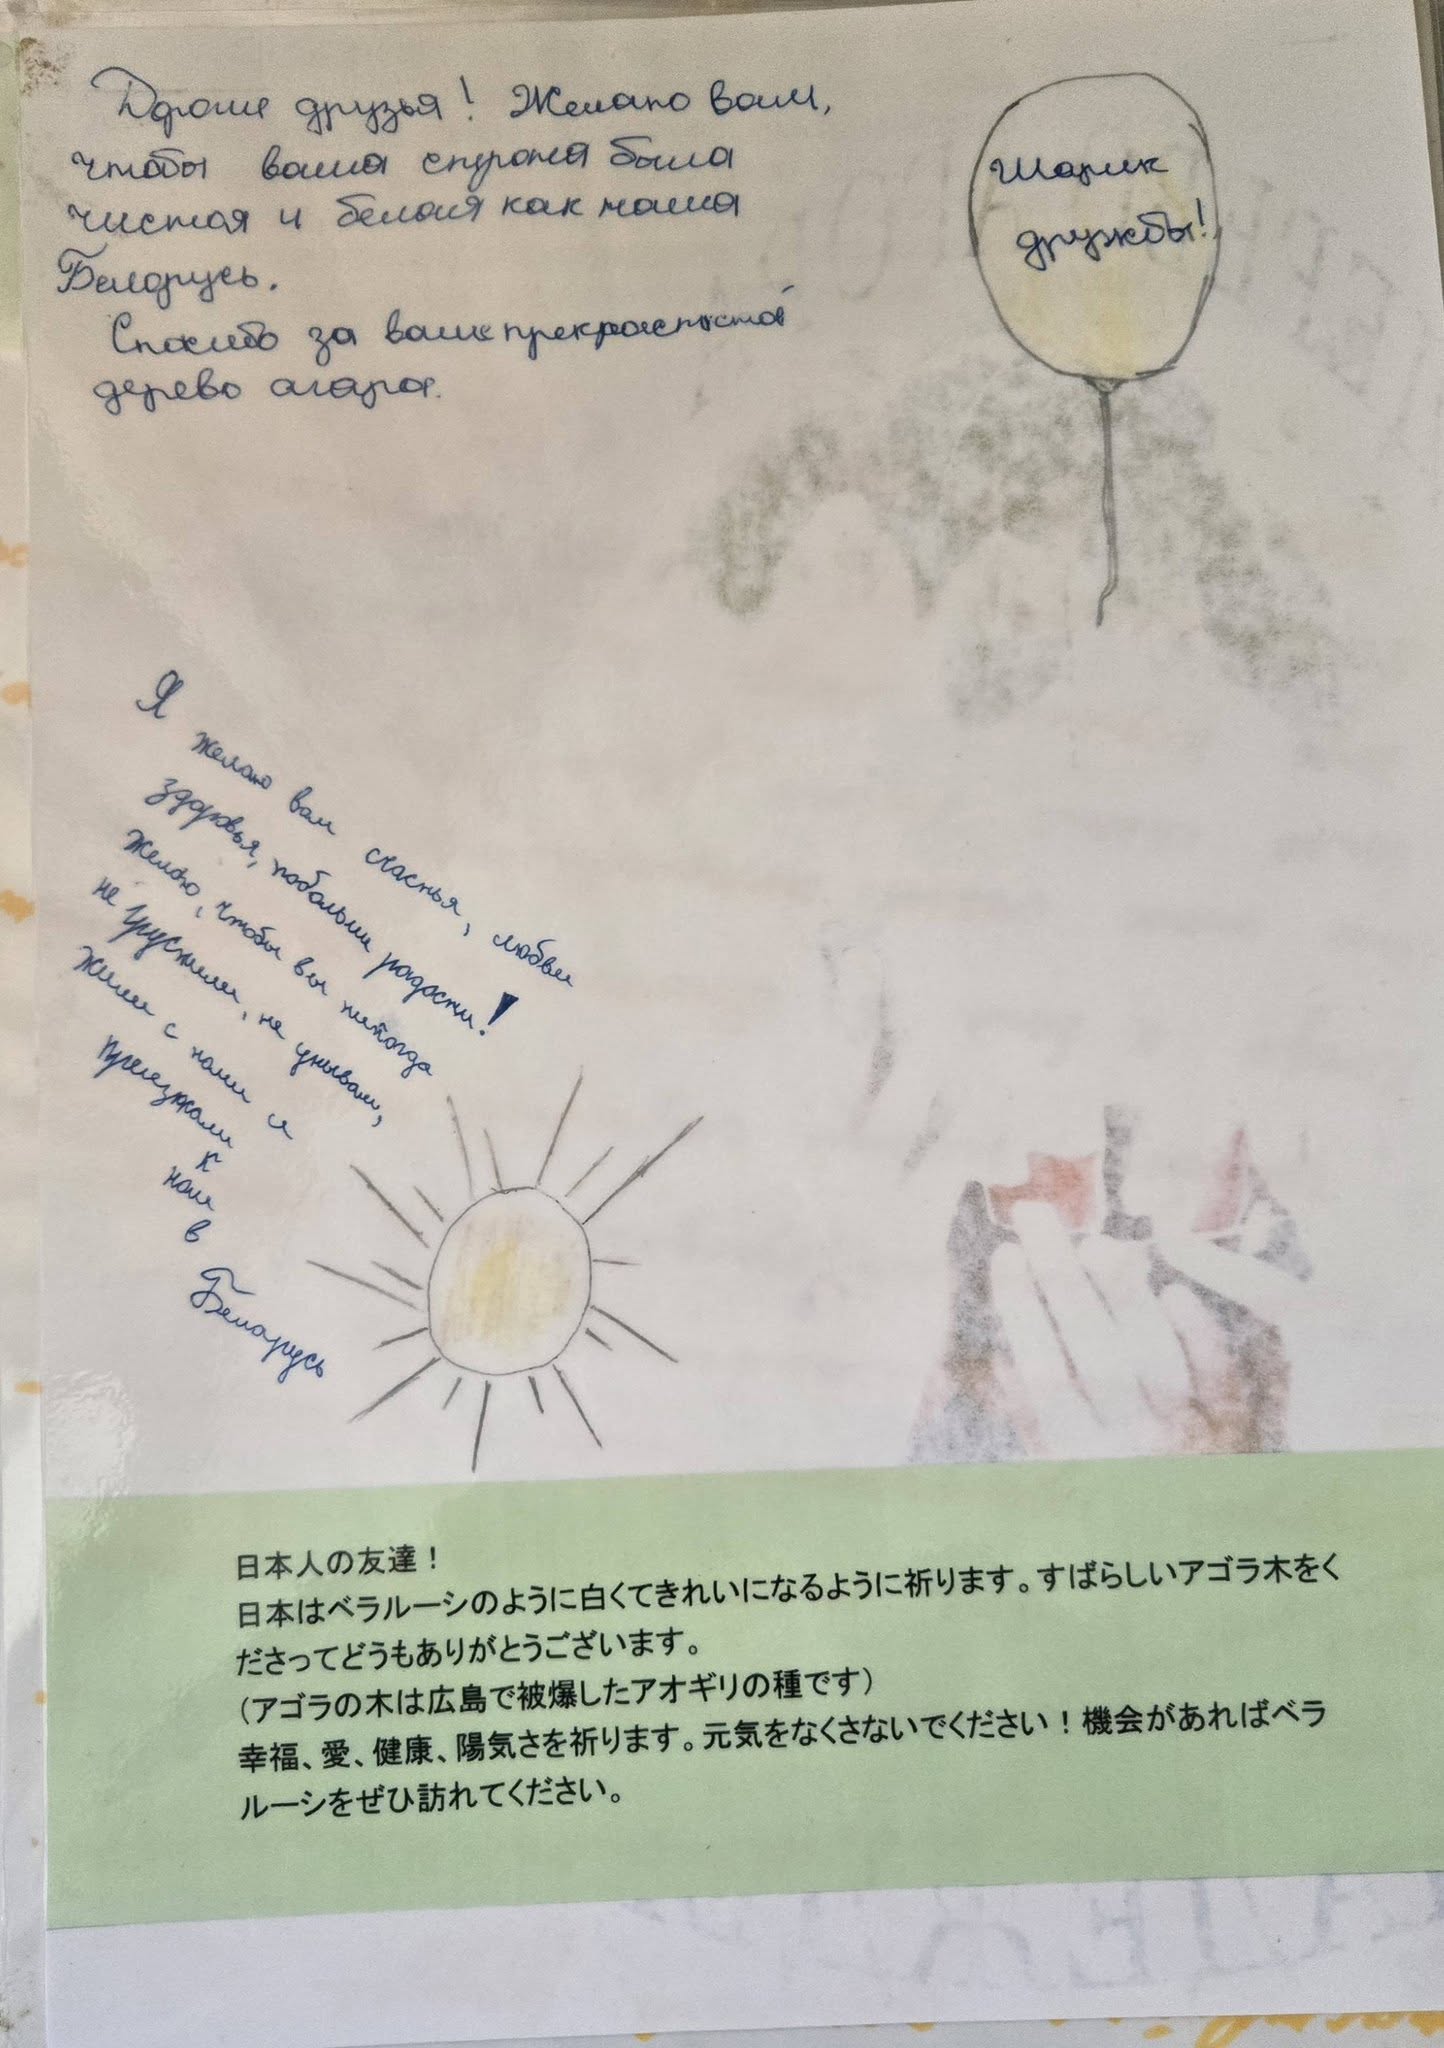 Дорогие друзья! Желаю вам,
чтобы ваша страна была
чистая и белая как наша
Беларусь.
Спасибо за ваше прекрасное
дерево агара.
Шарик
дружбы!
Я желаю вам счастья, любви
здоровья, побольше радости!
Желаю, чтобы вы никогда
не грустили, не унывали,
Жили с нами и
приезжали
к
нам
в
Беларусь
日本人の友達！
日本はベラルーシのように白くてきれいになるように祈ります。すばらしいアゴラ木をく
ださってどうもありがとうございます。
（アゴラの木は広島で被爆したアオギリの種です）
幸福、愛、健康、陽気さを祈ります。元気をなくさないでください！機会があればベラ
ルーシをぜひ訪れてください。